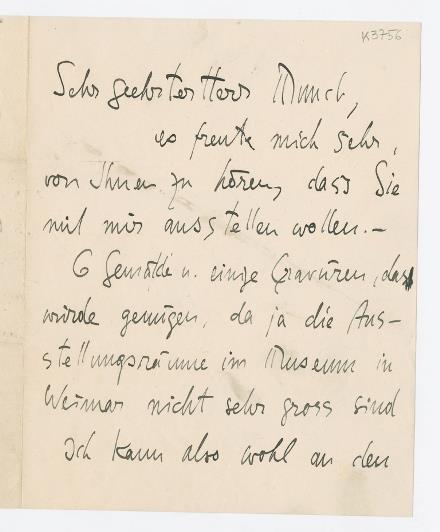 K3756
Sehr geehrter Herr Munch,
es freute mich sehr,
von Ihnen zu hören, dass Sie
mit mir ausstellen wollen.-
6 Gemälde u. einige Gravüren, das
würde genügen, da ja die Aus-
stellungsräume im Museum in
Weimar nicht sehr gross sind
Ich kann also wohl an den